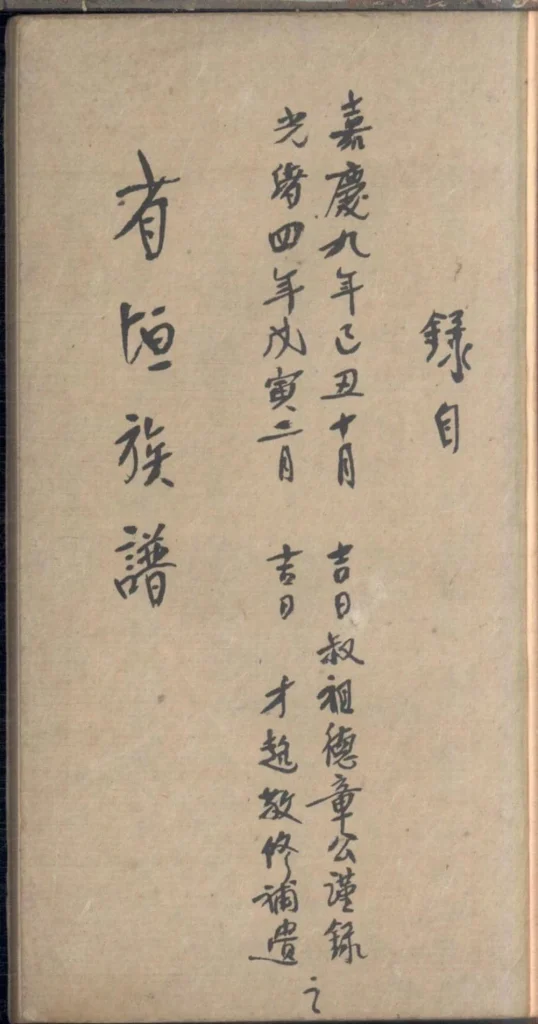 錄自
嘉慶九年己丑十月 吉日叔祖德章公謹錄
光緒四年戊寅二月 吉日 才起敬修補遺之
省垣族譜